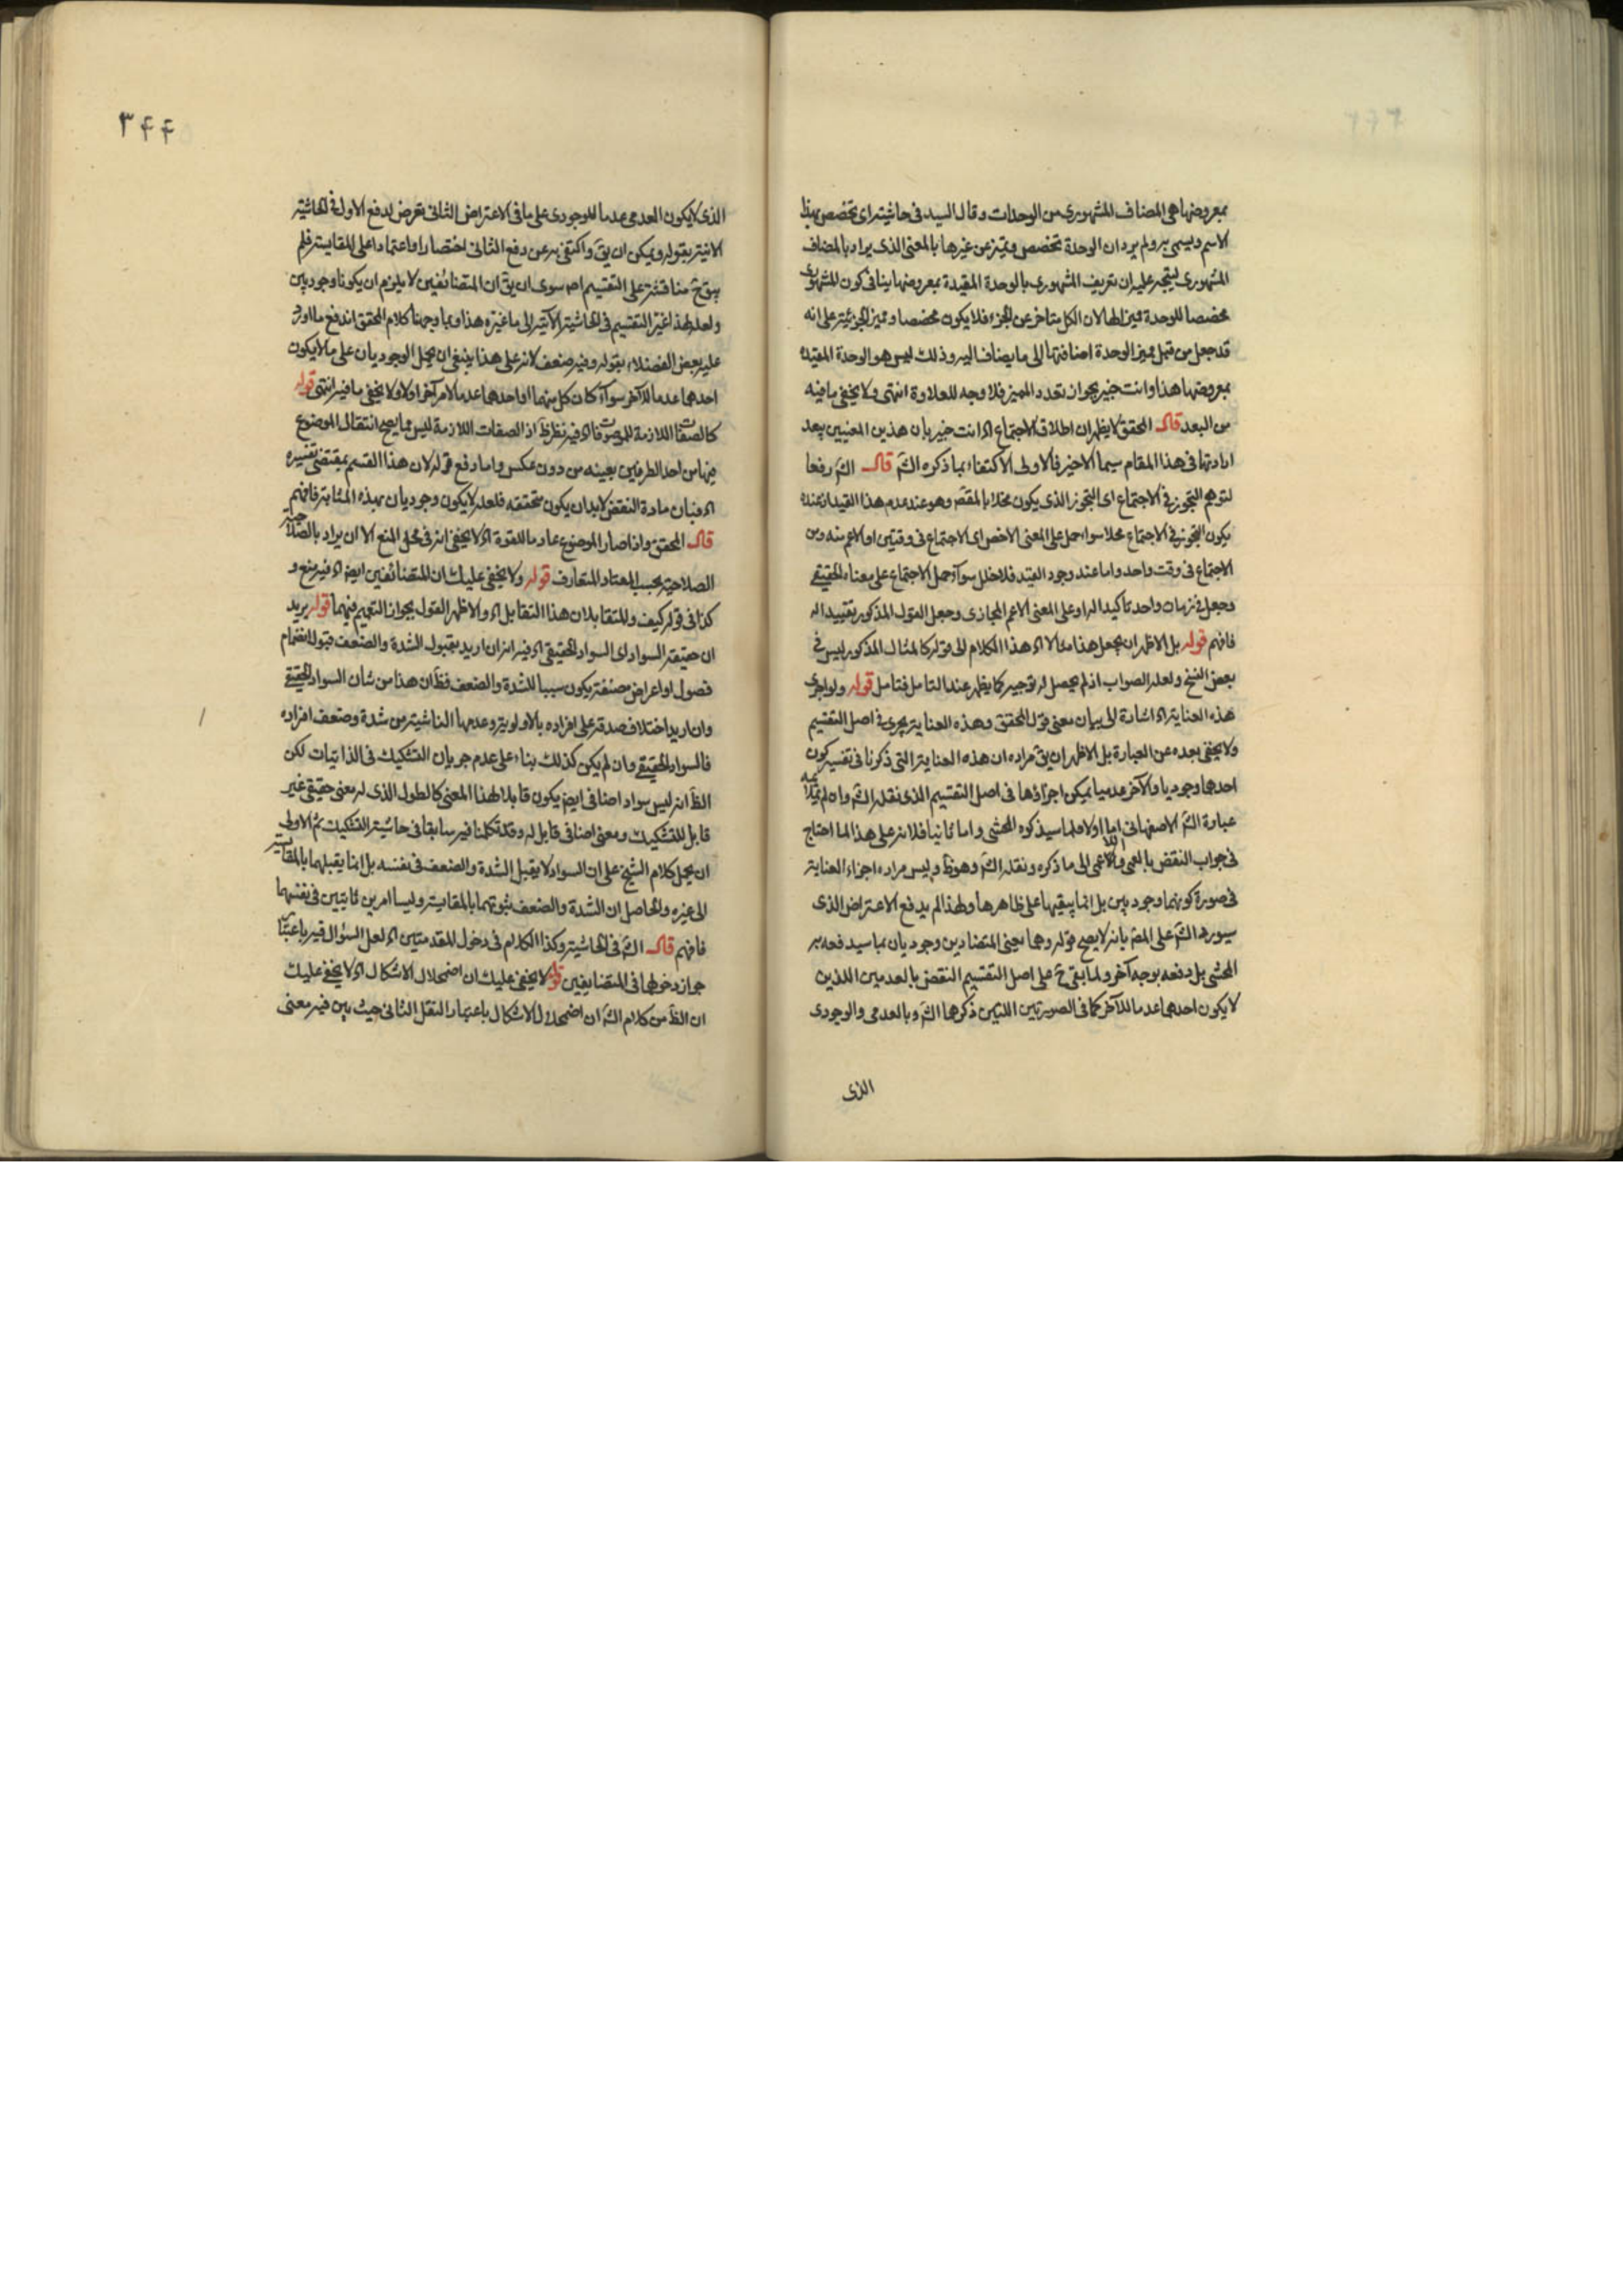 بمعروضها هى المضاف المشهورى من الوحدات وقال السيد فى حاشيته اى تخصص بهذا
الاسم ويسمى به ولم يرد ان الوحدة تخصص وتميز عن غيرها بالمعنى الذى يراد بالمضاف
المشهورى ليتجه عليه ان تعريف المشهورى بالوحدة المقيدة بمعروضها ينافى كون المشهورى
مخصصا للوحدة مميزا لها لان الكل متاخر عن الجزء فلا يكون مخصصا ومميزا لجزئيه على انه
قد جعل من قبل مميز الوحدة اضافتها الى ما يضاف اليه وذلك ليس هو الوحدة المقيدة
بمعروضها هذا وانت خبير بجواز تعدد المميز فلا وجه للعلاوة انتهى ولا يخفى ما فيه
من البعد قال المحقق لا يظهر ان اطلاق الاجتماع اه انت خبير بان هذين المعنيين يبعد
ارادتها فى هذا المقام سيما الاخير فالاولى الاكتفاء بما ذكره الش قال الش رفعا
لتوهم التجوز فى الاجتماع اى التجوز الذى يكون مخلا بالمقص وهو عند عدم هذا القيد اذ عنده
يكون التجوز فى الاجتماع مخلا سواء حمل على المعنى الاخص اى الاجتماع فى وقتين او الاعم منه ومن
الاجتماع فى وقت واحد واما عند وجود القيد فلا خلل سواء حمل الاجتماع على معناه الحقيقى
وجعل فى زمان واحد تاكيدا له او على المعنى الاعم المجازى وجعل القول المذكور تقييدا له
فافهم قوله بل الاظهر ان يجعل هذا مثالا اه هذا الكلام الى قوله كالمثال المذكور ليس فى
بعض النسخ ولعله الصواب اذ لم يحصل له توجيه كما يظهر عند التامل فتامل قوله ولو اجرى
هذه العناية اه اشارة الى بيان معنى قول المحقق وهذه العناية يجرى فى اصل التقسيم
ولا يخفى بعده عن العبارة بل الاظهر ان يق مراده ان هذه العناية التى ذكرنا فى تفسير كون
احدهما وجوديا والآخر عدميا يمكن اجراؤها فى اصل التقسيم الذى نقله الش وان لم
عبارة الش الاصفهانى اما اولا فلما سيذكره المحشى واما ثانيا فلانه على هذا لما احتاج
فى جواب النقض بالعمى واللاعمى الى ما ذكره ونقله الش وهو ظ وليس مراده اجراء العناية
فى صورة كونهما وجوديين بل انما يبقيها على ظاهرها ولهذا لم يدفع الاعتراض الذى
سيورده الش على المص بانه لا يصح قوله وهما يعنى المتضادين وجوديان بما سيدفعه به
المحشى بل دفعه بوجه آخر ولما بقى ح على اصل التقسيم النقض بالعدمين اللذين
لا يكون احدهما عدما للآخر كما فى الصورتين اللتين ذكرهما الش وبالعدمى والوجودى
الذى
٣۴۴
الذى لا يكون العدمى عدما للوجودى على ما فى الاعتراض الثانى تعرض لدفع الاول فى الحاشية
الاتية بقوله ويمكن ان يق واكتفى به عن دفع الثانى اختصارا واعتمادا على المقايسة فلم
يبق ح مناقشة على التقسيم اص سوى ان يق ان المتضائفين لا يلزم ان يكونا وجوديين
ولعله لهذا غير التقسيم فى الحاشية الآتية الى ما غيره هذا وبما وجهنا كلام المحقق اندفع ما اورد
عليه بعض الفضلاء بقوله وفيه ضعف لانه على هذا ينبغى ان يحمل الوجوديان على ما لا يكون
احدهما عدما للآخر سواء كان كل منهما او احدهما عدما لامر آخر او لا ولا يخفى ما فيه انتهى قوله
كالصفات اللازمة للموصوفات اه فيه نظر ظ اذ الصفات اللازمة ليس مما يصح انتقال الموضوع
فيها من احد الطرفين بعينه من دون عكس واما دفع قوله لان هذا القسم بمقتضى تفسيره
اه فبان مادة النقض لا بد ان يكون متحققة فلعله لا يكون وجوديان بهذه المثابة فافهم
قال المحقق واذا صار الموضوع عادما للقوة اه لا يخفى انه فى محل المنع الا ان يراد بالصلاحية
الصلاحية بحسب المعتاد المتعارف قوله ولا يخفى عليك ان المتضائفين ايض اه فيه منع و
كذا فى قوله كيف والمتقابلان هذا التقابل اه والاظهر القول بجواز التعميم فيهما قوله يريد
ان حقيقة السواد اى السواد الحقيقى اه فيه انه ان اريد بقبول الشدة والضعف قبوله انضمام
فصول او اعراض مصنفة يكون سببا للشدة والضعف فظ ان هذا من شان السواد الحقيقى
وان اريد اختلاف صدقه على افراده بالاولوية وعدمها الناشية من شدة وضعف افراده
فالسواد الحقيقى وان لم يكن كذلك بناء على عدم جريان التشكيك فى الذاتيات لكن
الظ انه ليس سواد اضافى ايض يكون قابلا لهذا المعنى كالطول الذى له معنى حقيقى غير
قابل للتشكيك ومعنى اضافى قابل له وقد تكلمنا فيه سابقا فى حاشية التشكيك ثم الاولى
ان يحمل كلام الشيخ على ان السواد لا يقبل الشدة والضعف فى نفسه بل انما يقبلهما بالمقايسة
الى غيره والحاصل ان الشدة والضعف ثبوتهما بالمقايسة وليسا امرين ثابتين فى نفسهما
فافهم قال الش فى الحاشية وكذا الكلام فى دخول المقدمتين اه لعل السؤال فيه باعتبار
جواز دخولها فى المتضايفين قوله لا يخفى عليك ان اضمحلال الاشكال اه لا يخفى عليك
ان الظ من كلام الش ان اضمحلال الاشكال باعتبار النقل الثانى حيث بين فيه معنى